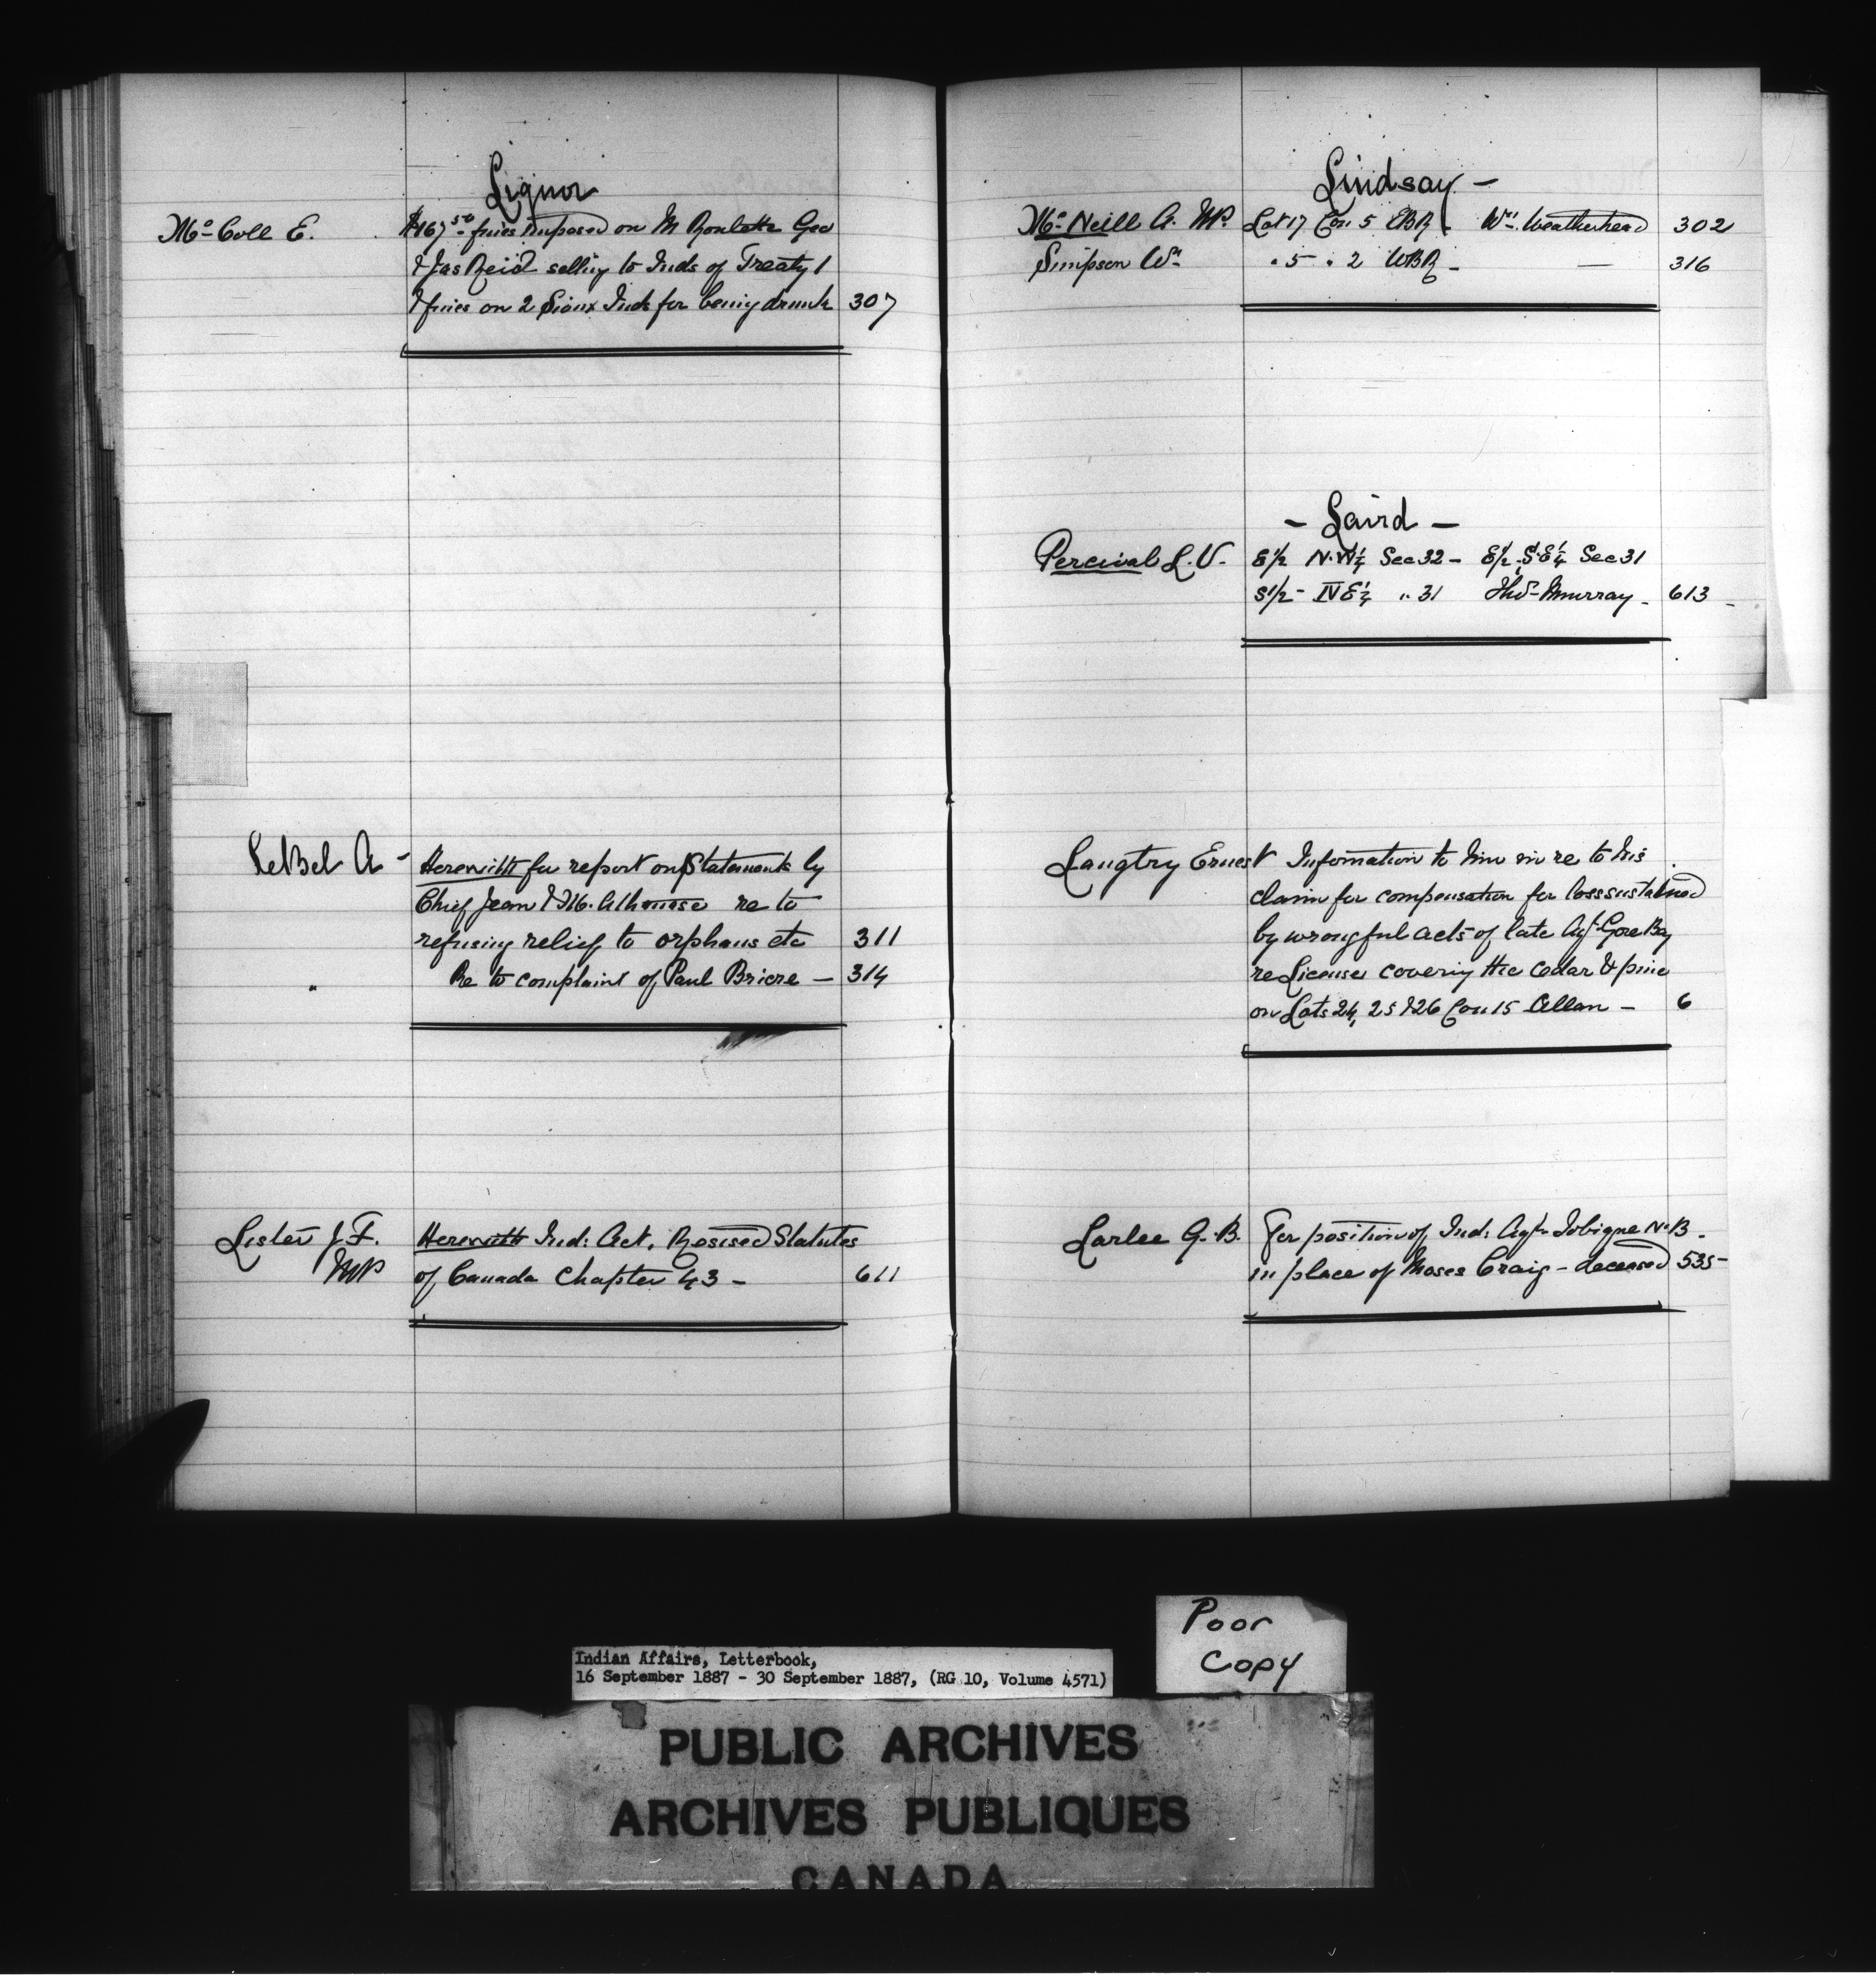 Liquor
Mc Coll E. $167.50 fines imposed on M Roulette Geo
& Jas Reid selling to Inds of Treaty 1
& fines on 2 Sioux Inds for being drunk 307
LeBel A - Herewith for report on Statements by
Chief Jean & M. Athanase re to
refusing relief to orphans etc 311
" Re to complaint of Paul Briere - 314
Lister J. F. Herewith Ind: Act, Revised Statutes
MP of Canada Chapter 43 - 611
Lindsay -
Mc Neill A. MP. Lot 17 Con 5 EBR Wm. Weatherhead 302
Simpson Wm " 5 " 2 WBR - — 316
- Laird -
Percival L. V. E1/2 N.W1/4 Sec 32 - E1/2 S.E1/4 Sec 31
S1/2 - NE1/4 " 31 Thos Murray - 613 -
Langtry Ernest Information to him in re to his
claim for compensation for loss sustained
by wrongful acts of late Agt Gore Bay
re License covering the cedar & pine
on Lots 24, 25 & 26 Con 15 Allan - 6
Larlee G. B. For position of Ind: Agt Tobique N.B.
in place of Moses Craig - deceased 535 -
Poor
Copy
Indian Affairs, Letterbook,
16 September 1887 - 30 September 1887, (RG 10, Volume 4571)
PUBLIC ARCHIVES
ARCHIVES PUBLIQUES
CANADA